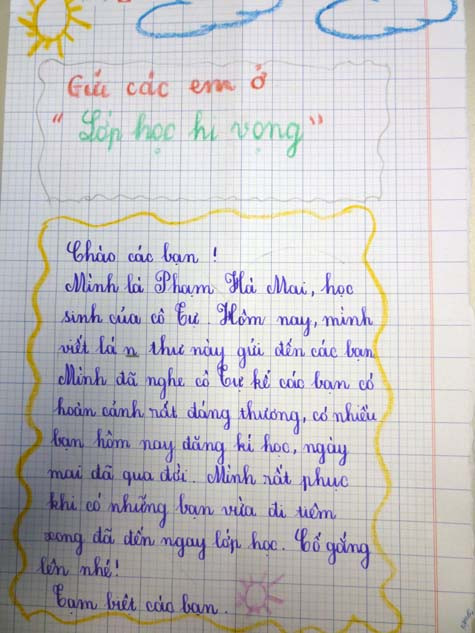 Gửi các em ở
"Lớp học hi vọng"
Chào các bạn !
Mình là Phạm Hà Mai, học
sinh của cô Cư. Hôm nay, mình
viết lá n thư này gửi đến các bạn
Mình đã nghe cô Cư kể các bạn có
hoàn cảnh rất đáng thương, có nhiều
bạn hôm nay đăng kí học, ngày
mai đã qua đời. Mình rất phục
khi có những bạn vừa đi tiêm
xong đã đến ngay lớp học. Cố gắng
lên nhé!
Tạm biệt các bạn.